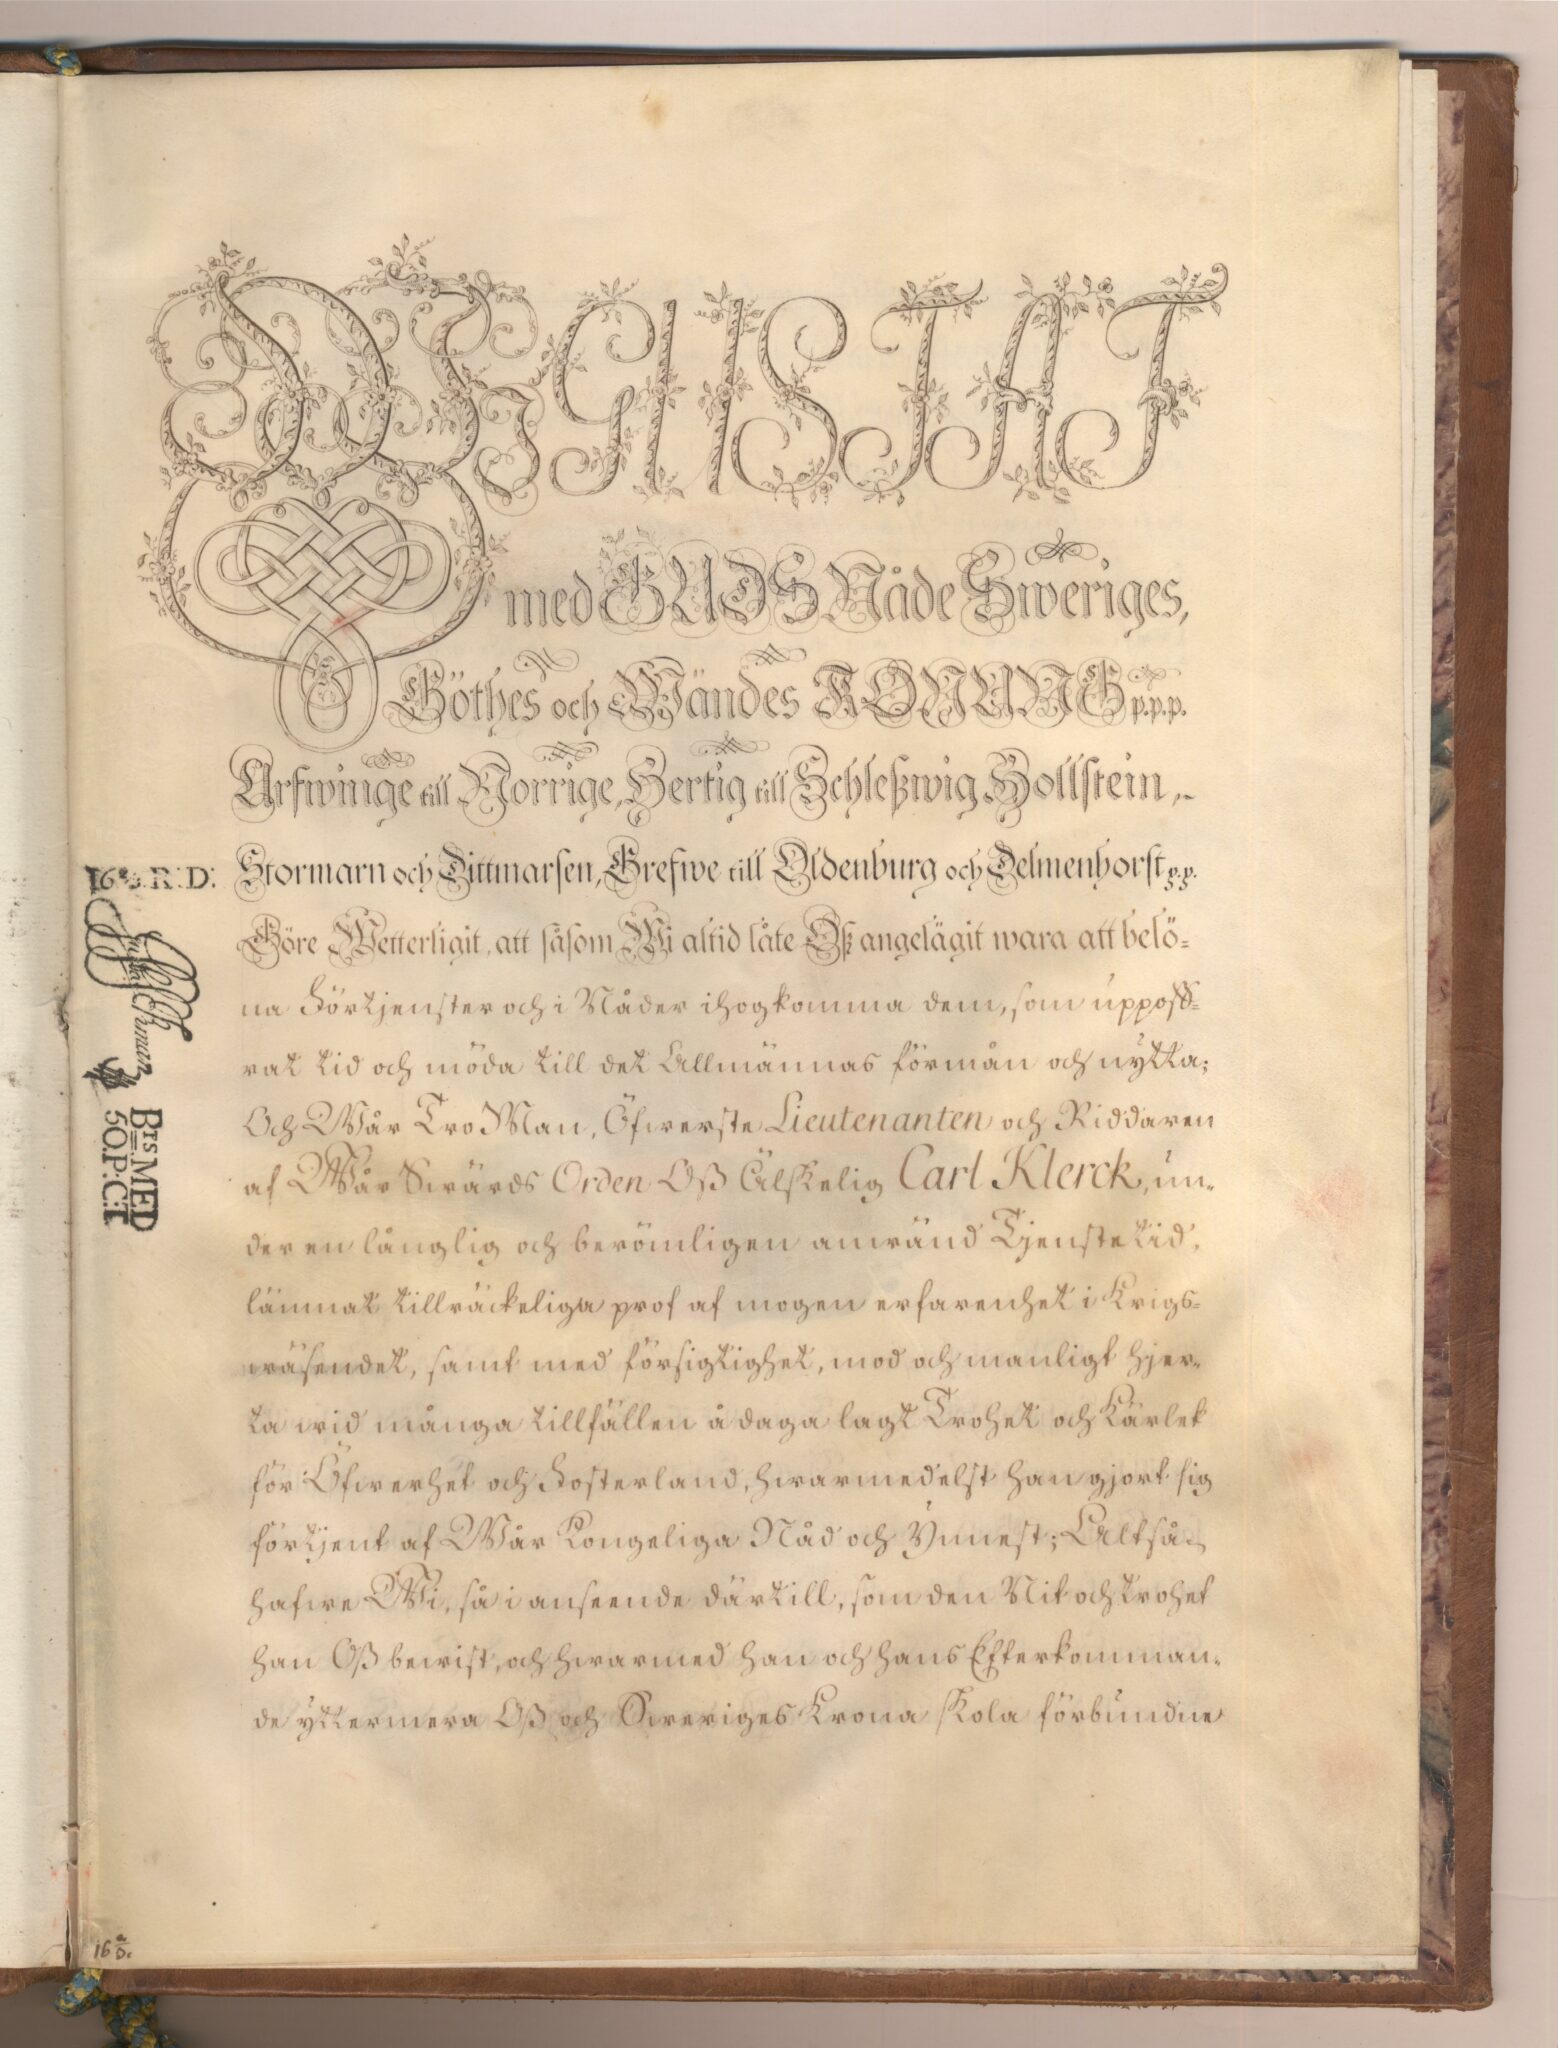 WI GUSTAF
med GUDS Nåde Sweriges,
Göthes och Wändes KONUNG p.p.p.
Arfwinge till Norrige, Hertig till Schleßwig Hollstein,
16 R:D:
Stormarn och Dittmarsen, Grefwe till Oldenburg och Delmenhorst p.p.
Göre Wetterligit, att såsom Wi altid låte Oß angelägit wara att belö=
na Förtjenster och i Nåder ihogkomma dem, som uppoff=
rat tid och möda till det Allmännas förmån och nytta;
Och Wår Tro Man, Öfwerste Lieutenanten och Riddaren
af Wår Swärds Orden Oß Älskelig Carl Klerck, un=
der en långlig och berömligen anwänd Tjenste tid,
lämnat tillräckeliga prof af mogen erfarenhet i Krigs=
wäsendet, samt med försigtighet, mod och manligt hjer=
ta wid många tillfällen å daga lagt Trohet och Kärlek
för Öfwerhet och Fosterland, hwarmedelst han gjort sig
förtjent af Wår Kongeliga Nåd och Ynnest; Altså
hafwe Wi, så i anseende därtill, som den Nit och trohet
han Oß bewist, och hwarmed han och hans Efterkomman=
de yttermera Oß och Sweriges Krona skola förbundne
B:rs MED
50.P:C:T
16 a/D.